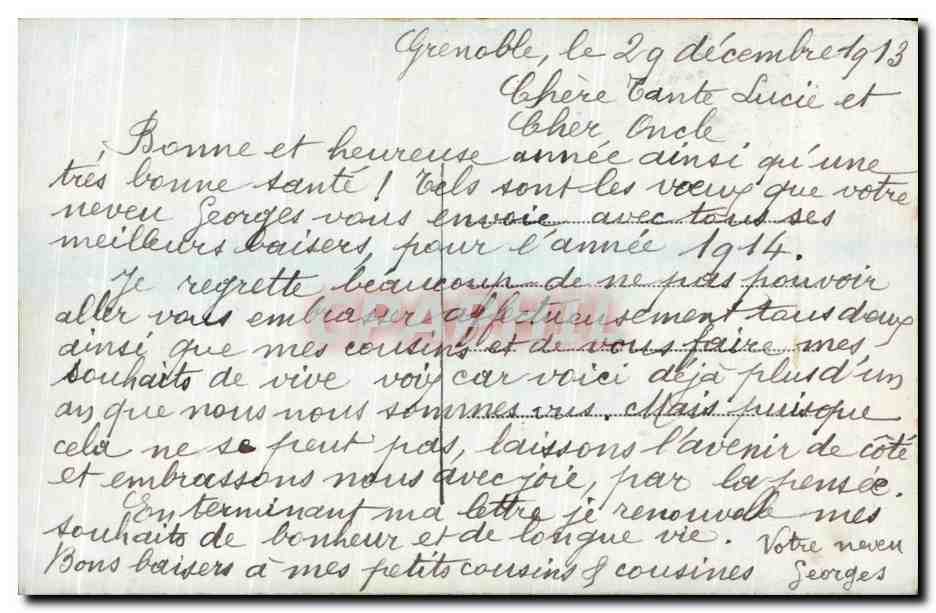 Grenoble, le 29 décembre 1913
Chère Tante Lucie et
Cher Oncle
Bonne et heureuse année ainsi qu'une
très bonne santé ! Tels sont les vœux que votre
neveu Georges vous envoie avec tous ses
meilleurs baisers, pour l'année 1914.
Je regrette beaucoup de ne pas pouvoir
aller vous embrasser affectueusement tous deux
ainsi que mes cousins et de vous faire mes
souhaits de vive voix car voici déjà plus d'un
an que nous nous sommes vus. Mais puisque
cela ne se peut pas, laissons l'avenir de côté
et embrassons nous avec joie, par la pensée.
En terminant ma lettre je renouvelle mes
souhaits de bonheur et de longue vie. Votre neveu
Bons baisers à mes petits cousins & cousines Georges